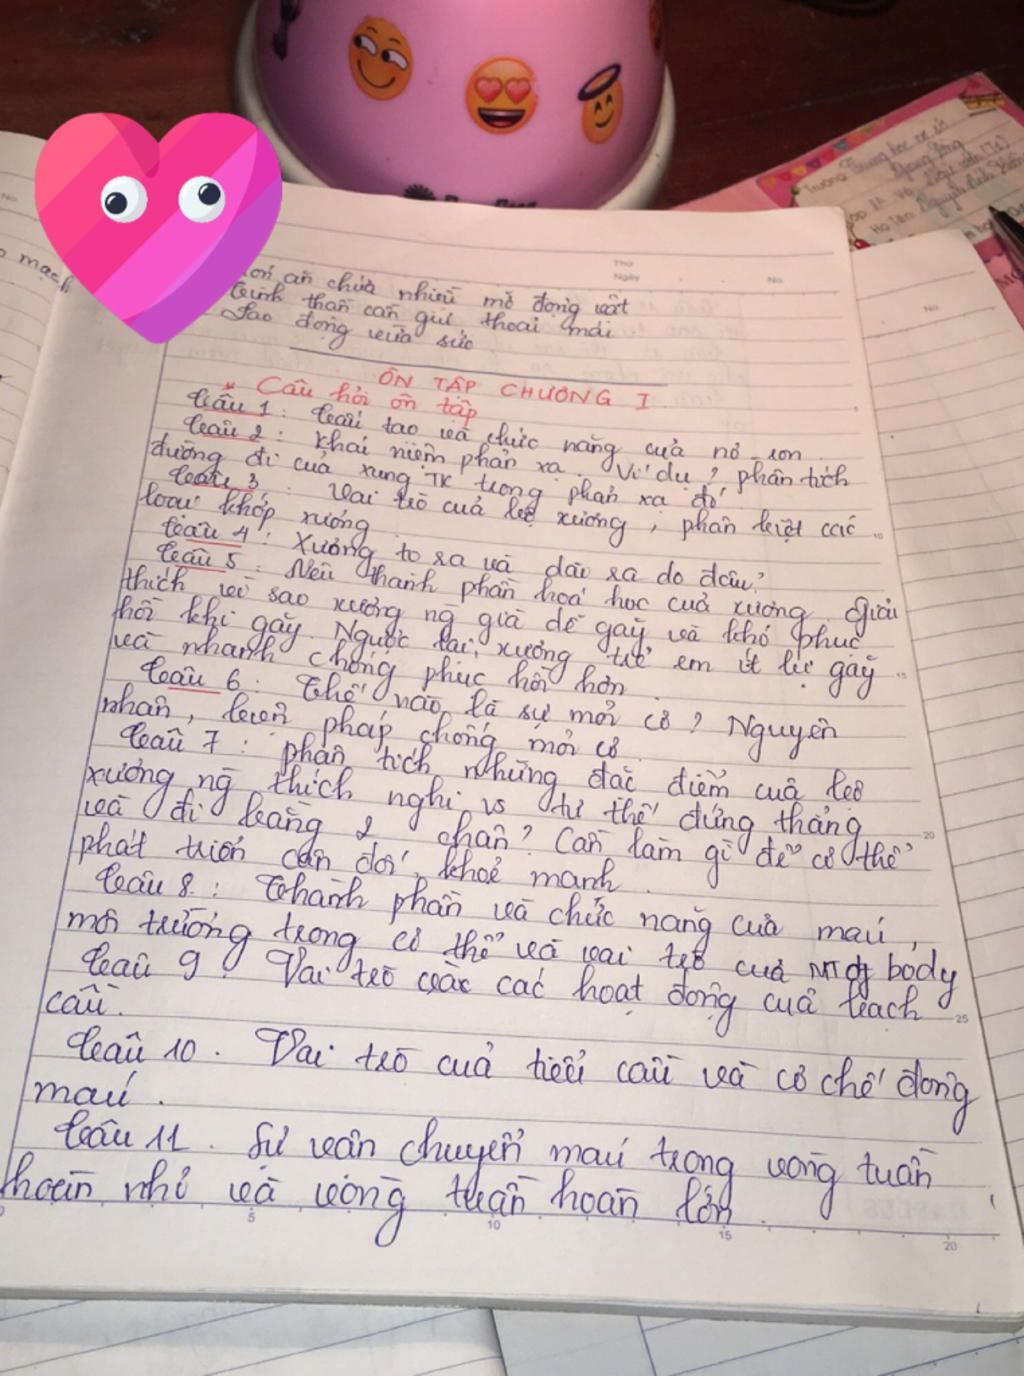 mạch
ăn chứa nhiều mỡ động vật
tinh thần cần giữ thoải mái
Lao động vừa sức
ÔN TẬP CHƯƠNG I
* Câu hỏi ôn tập
Câu 1: Cấu tạo và chức năng của nơ-ron
Câu 2: Khái niệm phản xạ. Ví dụ? phân tích
đường đi của xung TK trong phản xạ đó
Câu 3: Vai trò của bộ xương, phân biệt các
loại khớp xương
Câu 4: Xương to ra và dài ra do đâu?
Câu 5: Nêu thành phần hoá học của xương. Giải
thích vì sao xương ng già dễ gãy và khó phục
hồi khi gãy. Ngược lại, xương trẻ em ít bị gãy
và nhanh chóng phục hồi hơn.
Câu 6: Thế nào là sự mỏi cơ? Nguyên
nhân, biện pháp chống mỏi cơ
Câu 7: phân tích những đặc điểm của bộ
xương ng thích nghi vs tư thế đứng thẳng
và đi bằng 2 chân? Cần làm gì để cơ thể
phát triển cân đối, khoẻ mạnh.
Câu 8: Thành phần và chức năng của máu,
môi trường trong cơ thể và vai trò của MT body
Câu 9: Vai trò các hoạt động của bạch
cầu.
Câu 10. Vai trò của tiểu cầu và cơ chế đông
máu.
Câu 11. Sự vận chuyển máu trong vòng tuần
hoàn nhỏ và vòng tuần hoàn lớn.
Thứ
Ngày
No
No
Trường: Trung học cơ sở
Họ tên: Nguyễn
5
10
15
20
15
20
25